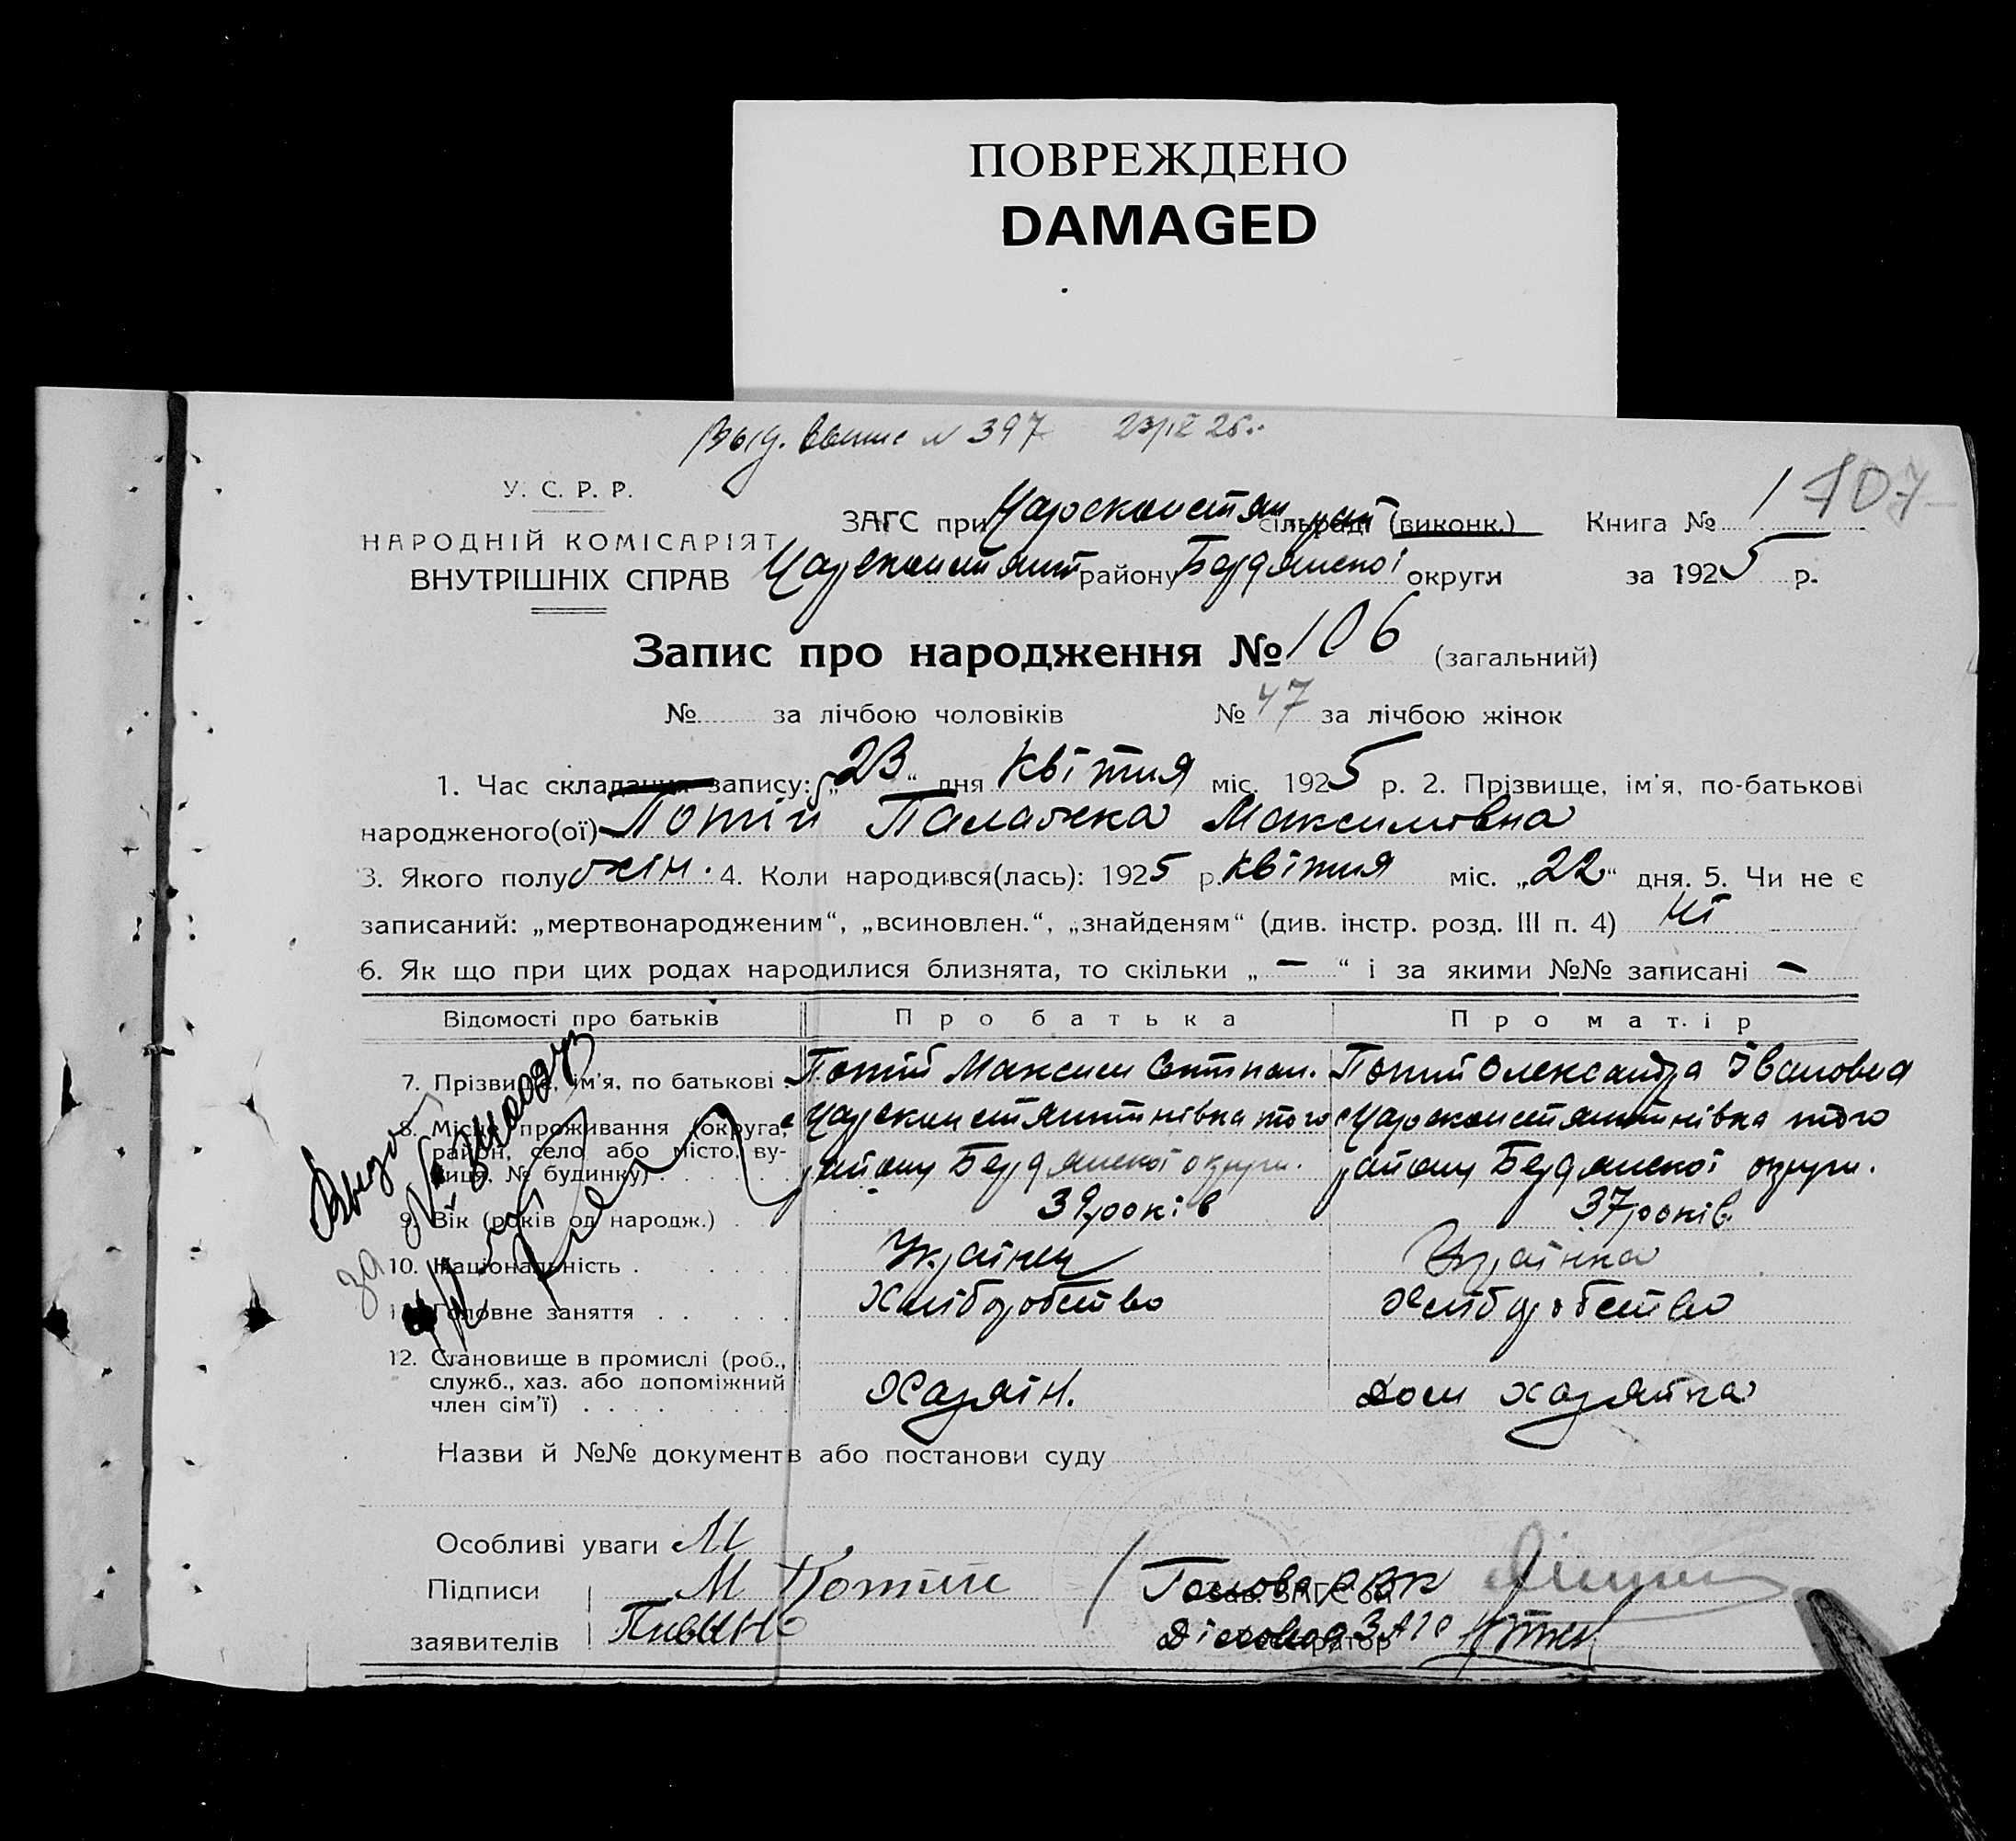 ПОВРЕЖДЕНО
DAMAGED
Выд. выпис № 397 23/IX 25 г.
У. С. Р. Р.
НАРОДНІЙ КОМІСАРІЯТ
ВНУТРІШНІХ СПРАВ
ЗАГС при Царскокстян сільраді (виконк.) Книга № 1 107
району Бердянської округи за 1925 р.
Запис про народження № 106 (загальний)
№ за лічбою чоловіків № 47 за лічбою жінок
1. Час складання запису: „23“ дня квітня міс. 1925 р. 2. Прізвище, ім'я, по-батькові
народженого(ої) Потій Палажка Максимовна
3. Якого полу жін. 4. Коли народився(лась): 1925 р. квітня міс. „22“ дня. 5. Чи не є
записаний: „мертвонародженим“, „всиновлен.“, „знайденям“ (див. інстр. розд. III п. 4) ні
6. Як що при цих родах народилися близнята, то скільки „ — “ і за якими №№ записані —
Відомості про батьків Про батька Про матір
7. Прізвище, ім'я, по батькові Потій Максим Степан. Потий Олександра Івановна
8. Місце проживання (округа, район, село або місто, вулиця, № будинку)
того району Бердянської округи.
того району Бердянської округи.
9. Вік (років од народж.) 39 років 37 років.
10. Національність Українец Українка
11. Головне заняття Хліборобство Хліборобство
12. Становище в промислі (роб.,
служб., хаз. або допоміжний
член сім'ї) Хазяін. Дом хазяйка
Назви й №№ документів або постанови суду
Особливі уваги
Підписи М Потий Голова РВК
Зав. ЗАГС'ом
заявителів Діловод ЗАГС